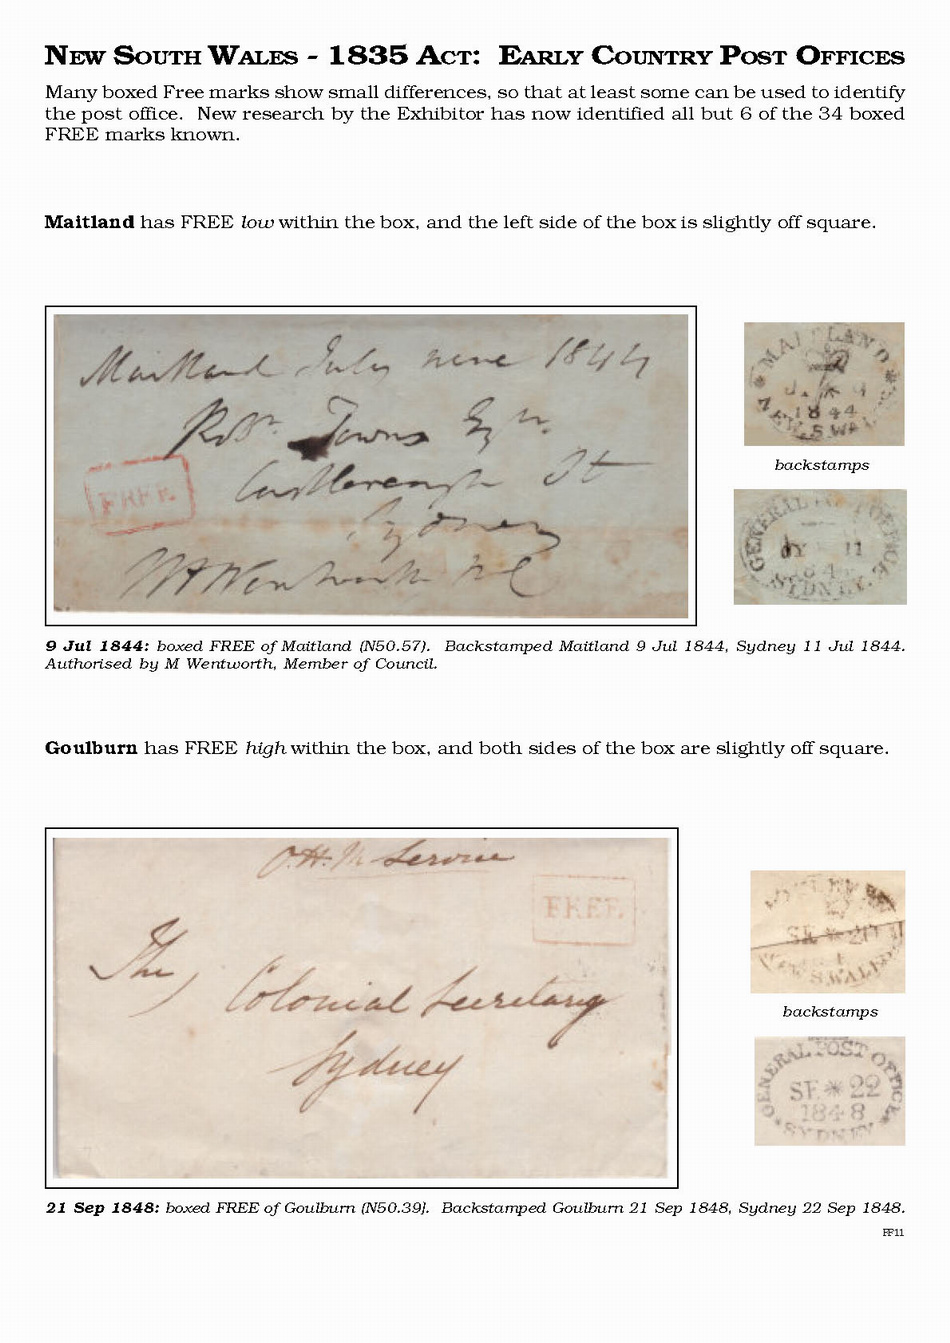 NEW SOUTH WALES - 1835 ACT: EARLY COUNTRY POST OFFICES
Many boxed Free marks show small differences, so that at least some can be used to identify
the post office. New research by the Exhibitor has now identified all but 6 of the 34 boxed
FREE marks known.
Maitland has FREE low within the box, and the left side of the box is slightly off square.
Maitland July nine 1844
Robt. Towns Esqr.
Castlereagh St
Sydney
FREE
MAITLAND
9
1844
NEW. S. WA
backstamps
GENERAL POST OFFICE
JY 11
184
SYDNEY.
9 Jul 1844: boxed FREE of Maitland (N50.57). Backstamped Maitland 9 Jul 1844, Sydney 11 Jul 1844.
Authorised by M Wentworth, Member of Council.
Goulburn has FREE high within the box, and both sides of the box are slightly off square.
O.H.M Service
FREE
The
Colonial Secretary
Sydney
SE
NEW S WALES
backstamps
GENERAL POST OFFICE
SE * 22
1848
SYDNEY
21 Sep 1848: boxed FREE of Goulburn (N50.39]. Backstamped Goulburn 21 Sep 1848, Sydney 22 Sep 1848.
FF11